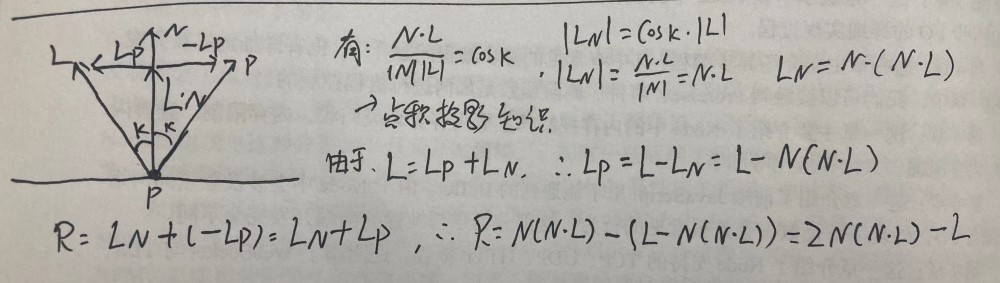 L LP N -LP P
有: N·L / |N||L| = cosK , |LN| = cosK·|L|
L·N
|LN| = N·L / |N| = N·L LN = N·(N·L)
→ 点积投影知识
K K
由于, L = LP + LN, ∴ LP = L - LN = L - N(N·L)
P
R = LN + (-LP) = LN + LP , ∴ R = N(N·L) - (L - N(N·L)) = 2N(N·L) - L